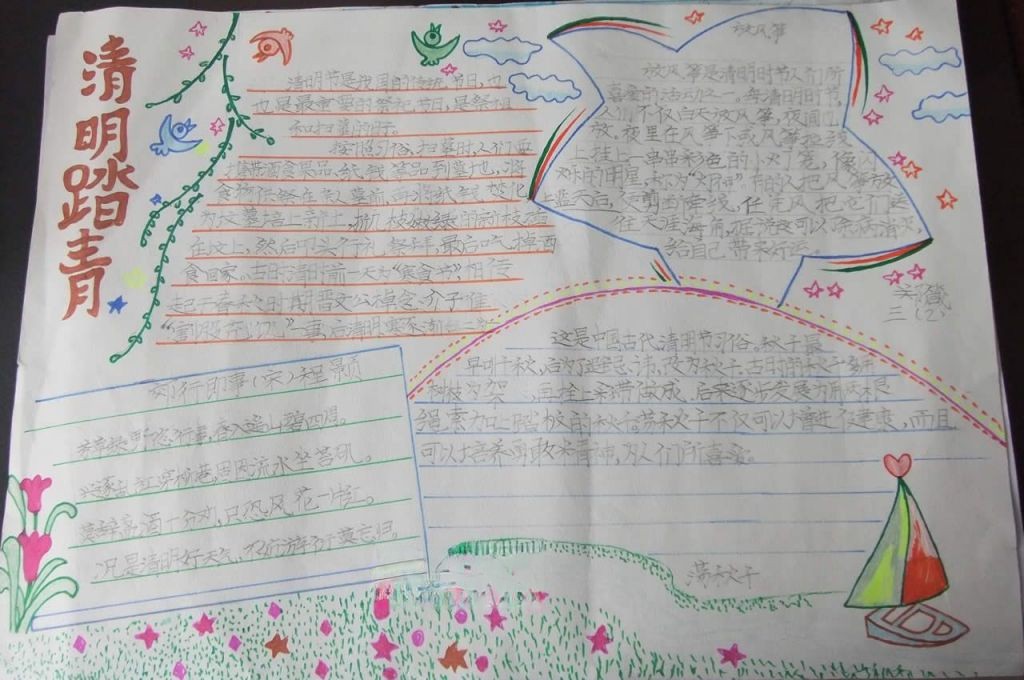 清明踏青
清明节是我国的传统节日,也
也是最重要的祭祀节日,是祭祖
和扫墓的日子。
按照习俗,扫墓时人们要
携带酒食果品,纸钱等品到墓地,将
食物供祭在亲人墓前,再将纸钱焚化
为坟墓培上新土,折几枝嫩绿的新枝插
在坟上,然后叩头行礼祭拜,最后吃掉酒
食回家。古时清明前一天为“寒食节”相传
起于春秋时期晋文公悼念介子推
“割股充饥”一事,后清明寒食
放风筝
放风筝是清明时节人们所
喜爱的活动之一。每清明时节,
人们不仅白天放风筝,夜间也
放。夜里在风筝下或风筝拉线
上挂上一串串彩色的小灯笼,像闪
烁的明星,称为“神灯”。有的人把风筝放
上蓝天后,剪断牵线,任凭风把它们送
往天涯海角,据说这可以除病消灾,
给自己带来好运。
三(2)
这是中国古代清明节习俗。秋千最
早叫千秋,后为了避忌讳,改为秋千,古时的秋千
树枝为架,再栓上彩带做成,后来逐步发展为用两根
绳索加上踏板的秋千。荡秋千不仅可以增进健康,而且
可以培养勇敢精神,为人们所喜爱。
荡秋千
郊行即事(宋)程颢
芳草绿野恣行事,春入遥山碧四围。
兴逐乱红穿柳巷,困两流水坐苔矶。
莫辞盏酒十分劝,只恐风花一片红。
况是清明好天气,不妨游衍莫忘归。